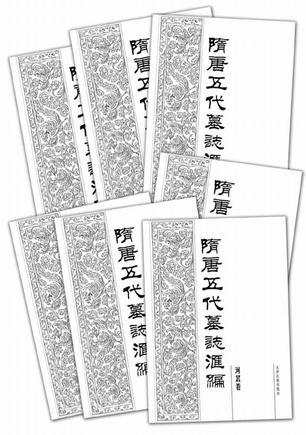 隋唐五代墓誌
隋唐五代墓誌
隋唐五代墓誌
隋唐
隋唐五代墓誌匯編
隋唐五代墓誌匯編
河北卷
天津古籍出版社